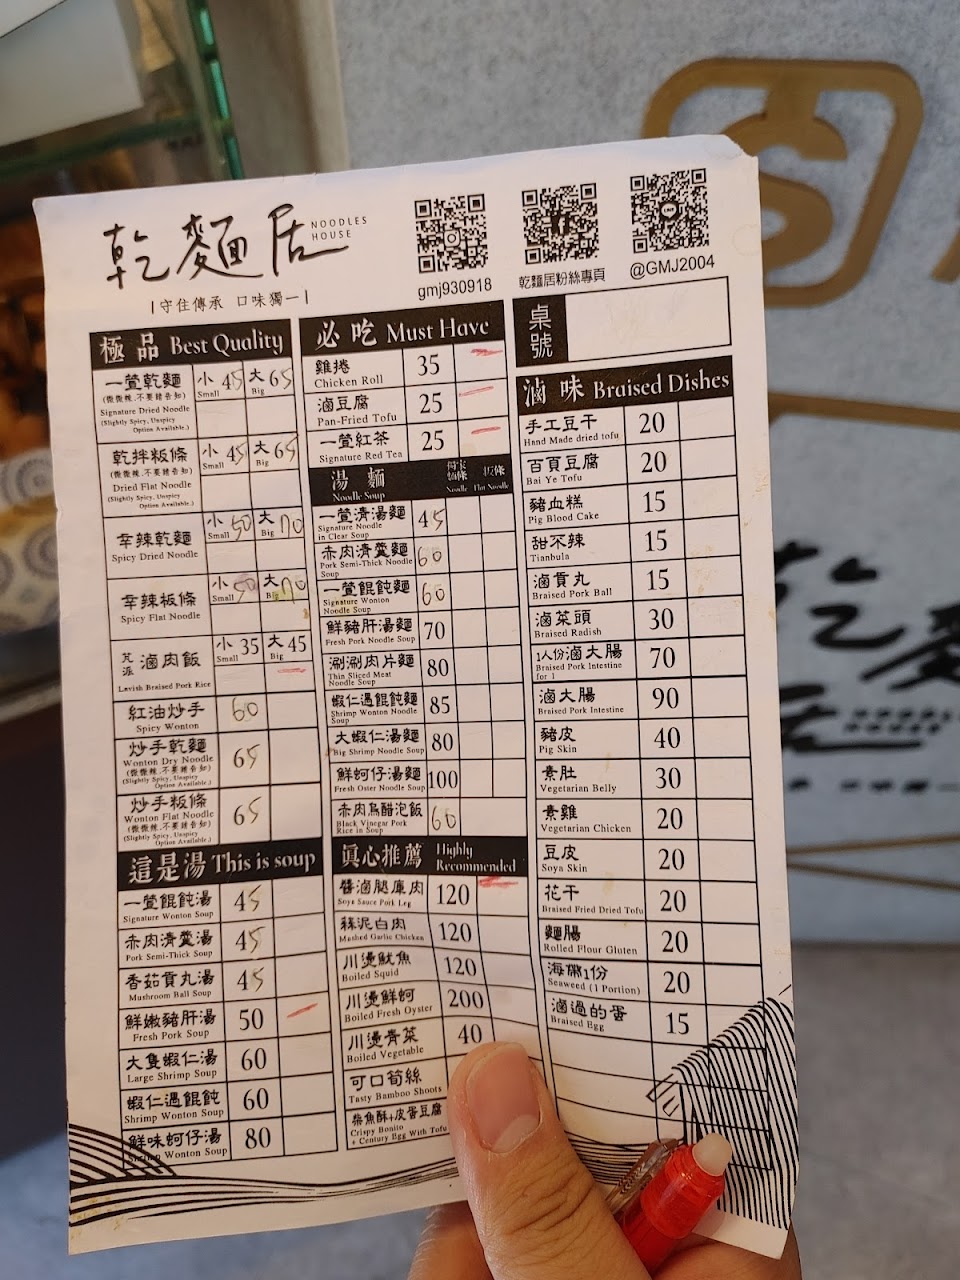 乾麵居 NOODLES HOUSE
|守住傳承 口味獨一|
gmj930918
乾麵居粉絲專頁
@GMJ2004
極品 Best Quality
一萱乾麵 小 45 大 65
(微微辣.不要請告知) Small Big
Signature Dried Noodle
(Slightly Spicy, Unspicy
Option Available.)
乾拌粄條 小 45 大 65
(微微辣.不要請告知) Small Big
Dried Flat Noodle
(Slightly Spicy, Unspicy
Option Available.)
辛辣乾麵 小 50 大 70
Spicy Dried Noodle Small Big
辛辣粄條 小 50 大 70
Spicy Flat Noodle Small Big
滷肉飯 小 35 大 45
Small Big
Lavish Braised Pork Rice
紅油炒手 60
Spicy Wonton
炒手乾麵 65
Wonton Dry Noodle
(微微辣.不要請告知)
(Slightly Spicy, Unspicy
Option Available.)
炒手粄條 65
Wonton Flat Noodle
(微微辣.不要請告知)
(Slightly Spicy, Unspicy
Option Available.)
這是湯 This is soup
一萱餛飩湯 45
Signature Wonton Soup
赤肉清羹湯 45
Pork Semi-Thick Soup
香茹貢丸湯 45
Mushroom Ball Soup
鮮嫩豬肝湯 50
Fresh Pork Soup
大隻蝦仁湯 60
Large Shrimp Soup
蝦仁遇餛飩 60
Shrimp Wonton Soup
鮮味蚵仔湯 80
Shrimp Wonton Soup
必吃 Must Have
雞捲 35
Chicken Roll
滷豆腐 25
Pan-Fried Tofu
一萱紅茶 25
Signature Red Tea
湯麵
Noodle Soup Noodle 粄條 Flat Noodle
一萱清湯麵 45
Signature Noodle
in Clear Soup
赤肉清羹麵 60
Pork Semi-Thick Noodle
Soup
一萱餛飩麵 60
Signature Wonton
Noodle Soup
鮮豬肝湯麵 70
Fresh Pork Noodle Soup
涮涮肉片麵 80
Thin Sliced Meat
Noodle Soup
蝦仁遇餛飩麵 85
Shrimp Wonton Noodle
Soup
大蝦仁湯麵 80
Big Shrimp Noodle Soup
鮮蚵仔湯麵 100
Fresh Oster Noodle Soup
赤肉烏醋泡飯 60
Black Vinegar Pork
Rice in Soup
真心推薦 Highly Recommended
醬滷腿庫肉 120
Soya Sauce Pork Leg
蒜泥白肉 120
Mashed Garlic Chicken
川燙魷魚 120
Boiled Squid
川燙鮮蚵 200
Boiled Fresh Oyster
川燙青菜 40
Boiled Vegetable
可口筍絲
Tasty Bamboo Shoots
柴魚酥+皮蛋豆腐
Crispy Bonito
+ Century Egg With Tofu
桌號
滷味 Braised Dishes
手工豆干 20
Hand Made dried tofu
百頁豆腐 20
Bai Ye Tofu
豬血糕 15
Pig Blood Cake
甜不辣 15
Tianbula
滷貢丸 15
Braised Pork Ball
滷菜頭 30
Braised Radish
1人份滷大腸 70
Braised Pork Intestine
for 1
滷大腸 90
Braised Pork Intestine
豬皮 40
Pig Skin
素肚 30
Vegetarian Belly
素雞 20
Vegetarian Chicken
豆皮 20
Soya Skin
花干 20
Braised Fried Dried Tofu
麵腸 20
Rolled Flour Gluten
海帶1份 20
Seaweed (1 Portion)
滷過的蛋 15
Braised Egg